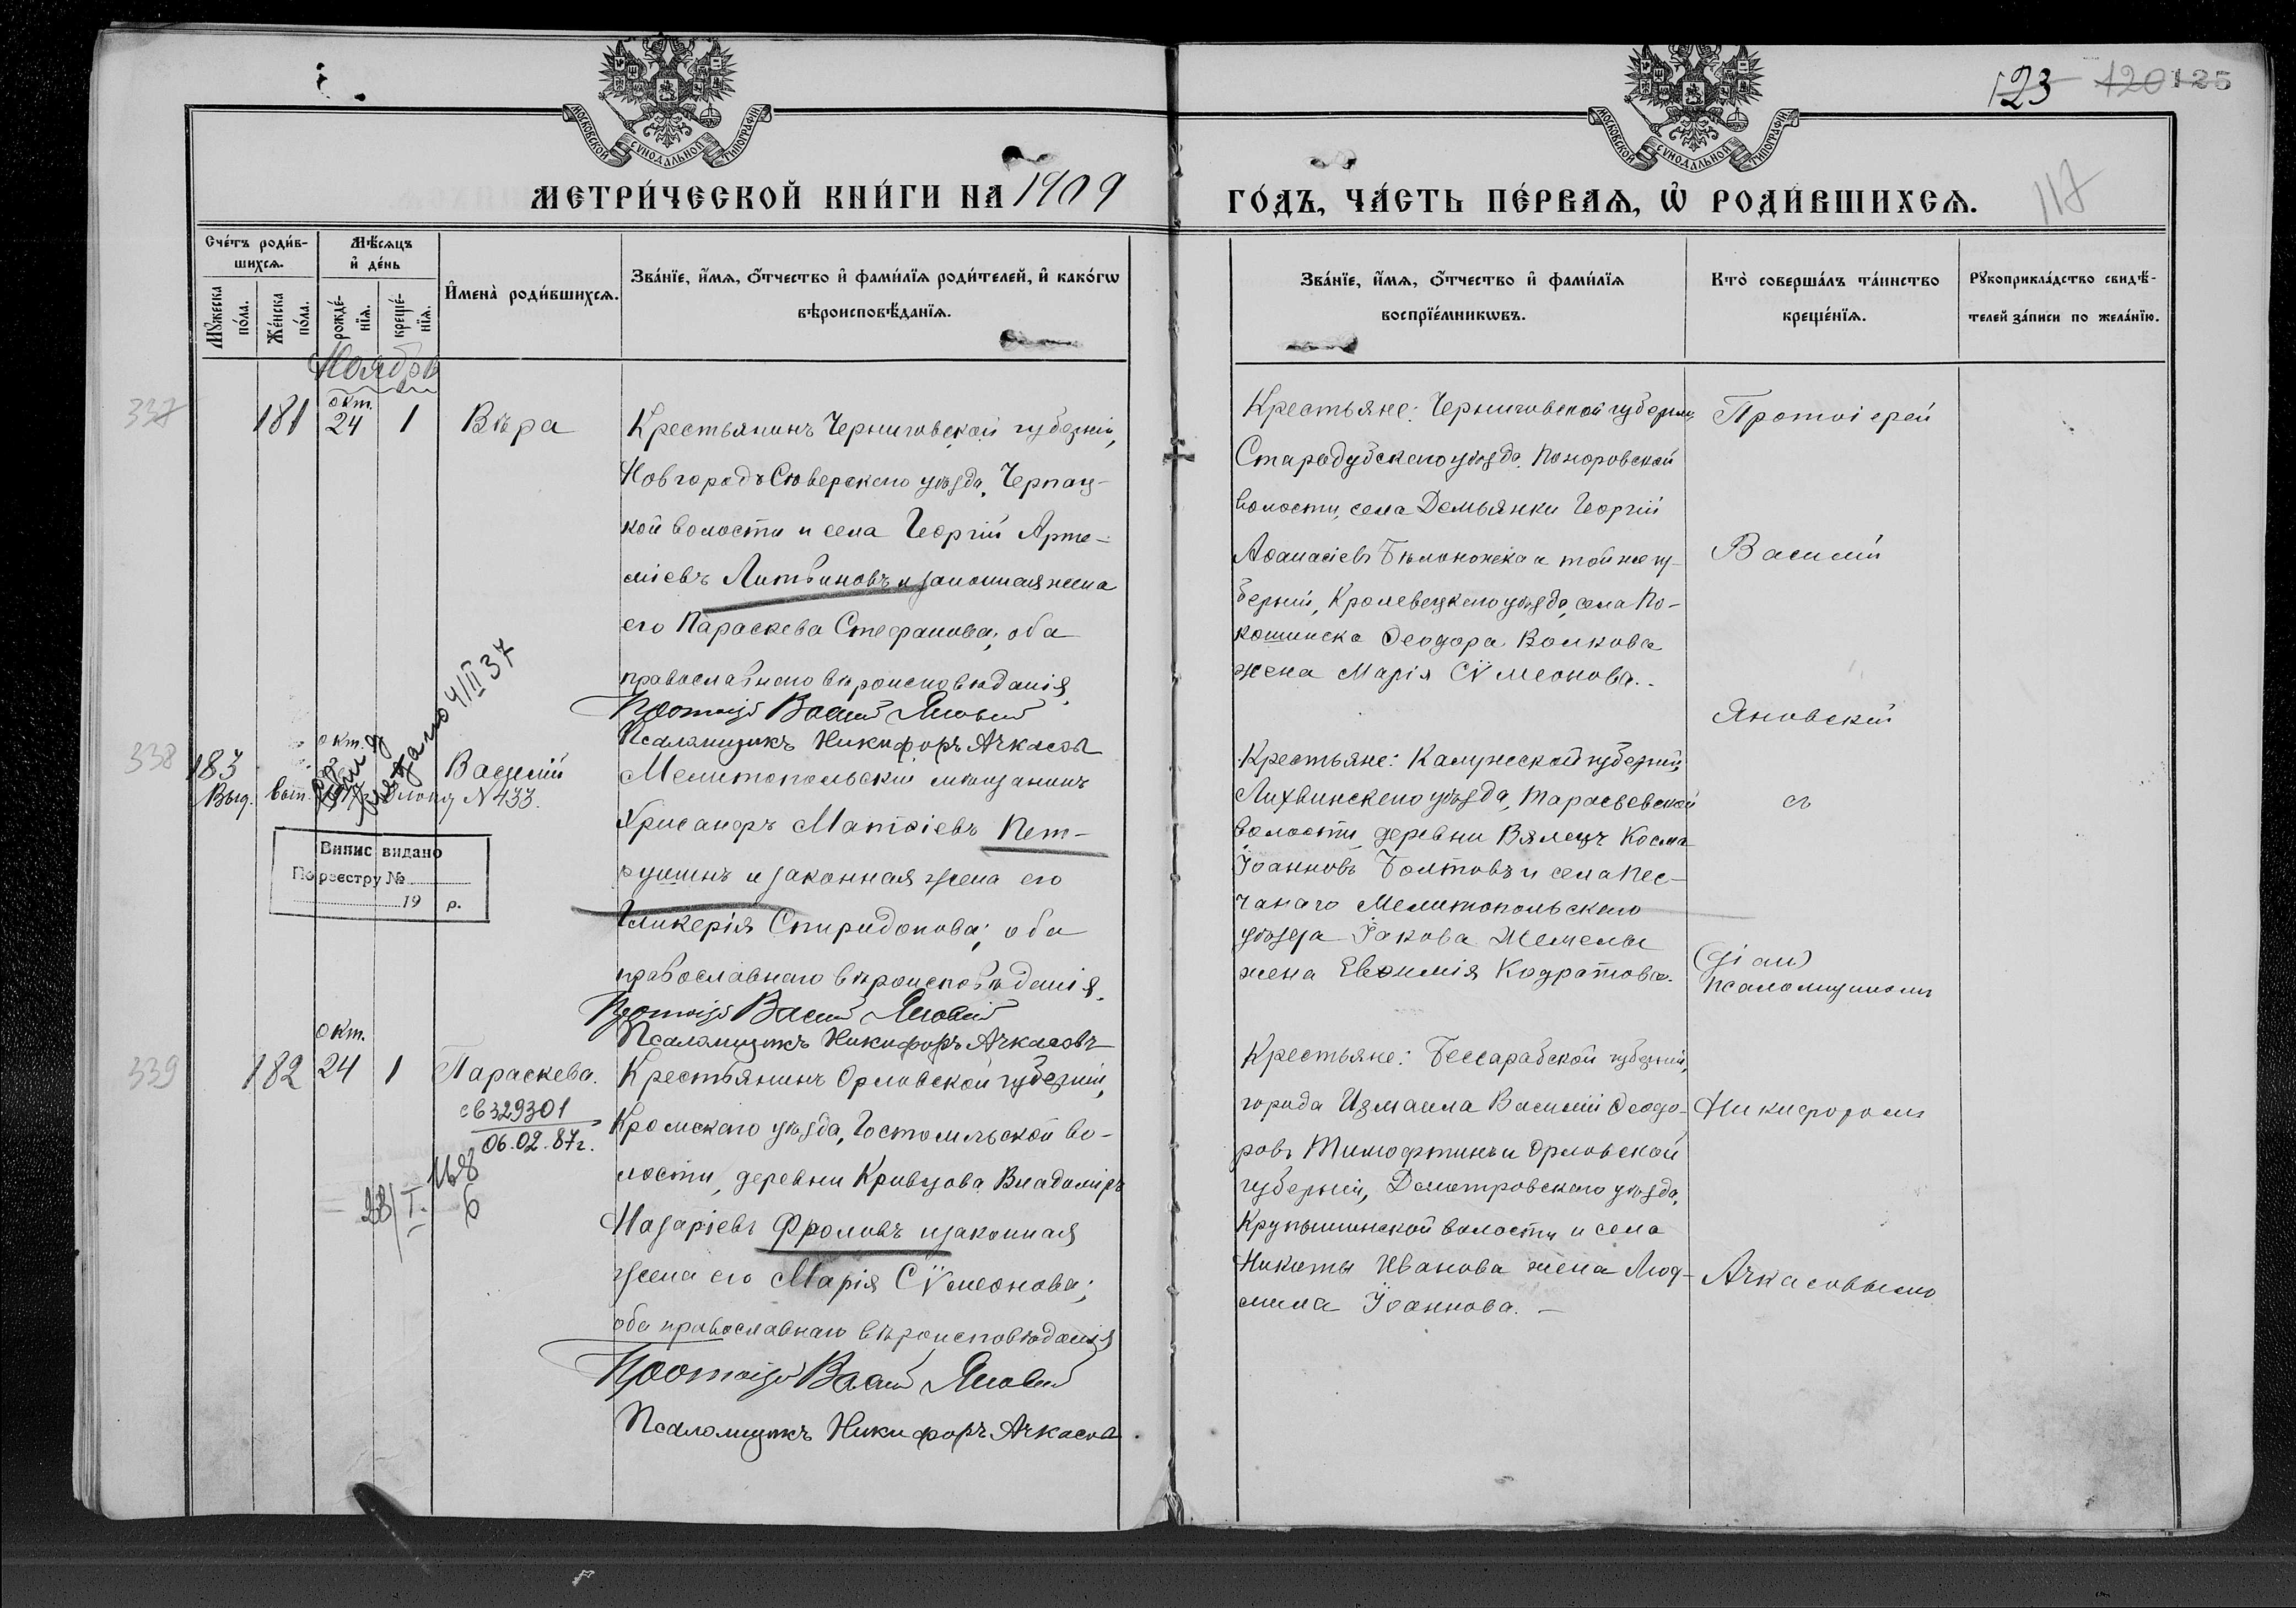 123 120 125
МОСКОВСКОЙ СѴНОДАЛЬНОЙ ТИПОГРАФІИ
МОСКОВСКОЙ СѴНОДАЛЬНОЙ ТИПОГРАФІИ
МЕТРИ́ЧЕСКОЙ КНИ́ГИ НА 1909
ГО́ДЪ, ЧА́СТЬ ПЕ́РВАЯ, Ѡ҆ РОДИ́ВШИХСЯ.
117
Сче́тъ роди́в-
шихся.
Мꙋ́жеска по́ла.
Же́нска по́ла.
Мѣ́сяцъ
и҆ де́нь
рожде́-
нїя.
креще́-
нїя.
И҆мена̀ роди́вшихся.
Зва́нїе, и҆́мя, ѻ҆́тчество и҆ фами́лїя роди́телей, и҆ како́гѡ
вѣроисповѣ́данїя.
Зва́нїе, и҆́мя, ѻ҆́тчество и҆ фами́лїя
воспрїе́мникѡвъ.
Кто̀ соверша́лъ та́инство
креще́нїя.
Рꙋкоприкла́дство свидѣ́-
телей за́писи по жела́нїю.
Ноябрь
337
181
окт.
24
1
Вѣра
Крестьянинъ Черниговской губерніи,
Новгородъ Сѣверскаго уѣзда, Черпац-
кой волости и села Георгій Арте-
міевъ Литвиновъ и законная жена
его Параскева Стефанова; оба
православнаго вѣроисповѣданія.
Протоіер Васил Яновскій
Псаломщикъ Никифоръ Ачкасов
Крестьяне: Черниговской губерніи,
Стародубскаго уѣзда, Поноровской
волости, села Демьянки Георгій
Аѳанасіевъ Бѣлоножка и той же гу-
берніи, Кролевецкаго уѣзда, села По-
кошинска Ѳеодора Волкова
жена Марія Сѵмеонова.
Протоіерей
Василій
Яновскій
338
183
окт.
Василій
Выд. вып.
N 433.
4/II 37
Випис видано
По реєстру №
19 р.
Мелитопольскій мѣщанинъ
Хрисанфъ Матѳіевъ Пет-
рушинъ и законная жена его
Гликерія Спиридонова; оба
православнаго вѣроисповѣданія.
Протоіер Васил Яновскій
Псаломщикъ Никифоръ Ачкасовъ
Крестьяне: Калужской губерніи,
Лихвинскаго уѣзда, Тарасьевской
волости, деревни Вялецъ Косма
Іоанновъ Болтовъ и села Пес-
чанаго Мелитопольскаго
уѣзда Іакова Шемелы
жена Евѳимія Кодратова.
съ
псаломщикомъ
339
182
окт.
24
1
Параскева.
св 329301
06.02.87г.
168
28/I. 6
Крестьянинъ Орловской губерніи,
Кромскаго уѣзда, Гостомльской во-
лости, деревни Кривцова Владиміръ
Назаріевъ Фроловъ и законная
жена его Марія Сѵмеонова;
оба православнаго вѣроисповѣданія
Протоіер Васил Яновскій
Псаломщикъ Никифоръ Ачкасов
Крестьяне: Бессарабской губерніи,
города Измаила Василій Ѳеодо-
ровъ Тимофтинъ и Орловской
губерніи, Дмитровскаго уѣзда,
Крупышинской волости и села
Никиты Иванова жена Люд-
мила Іоаннова. —
Никифоромъ
Ачкасовымъ